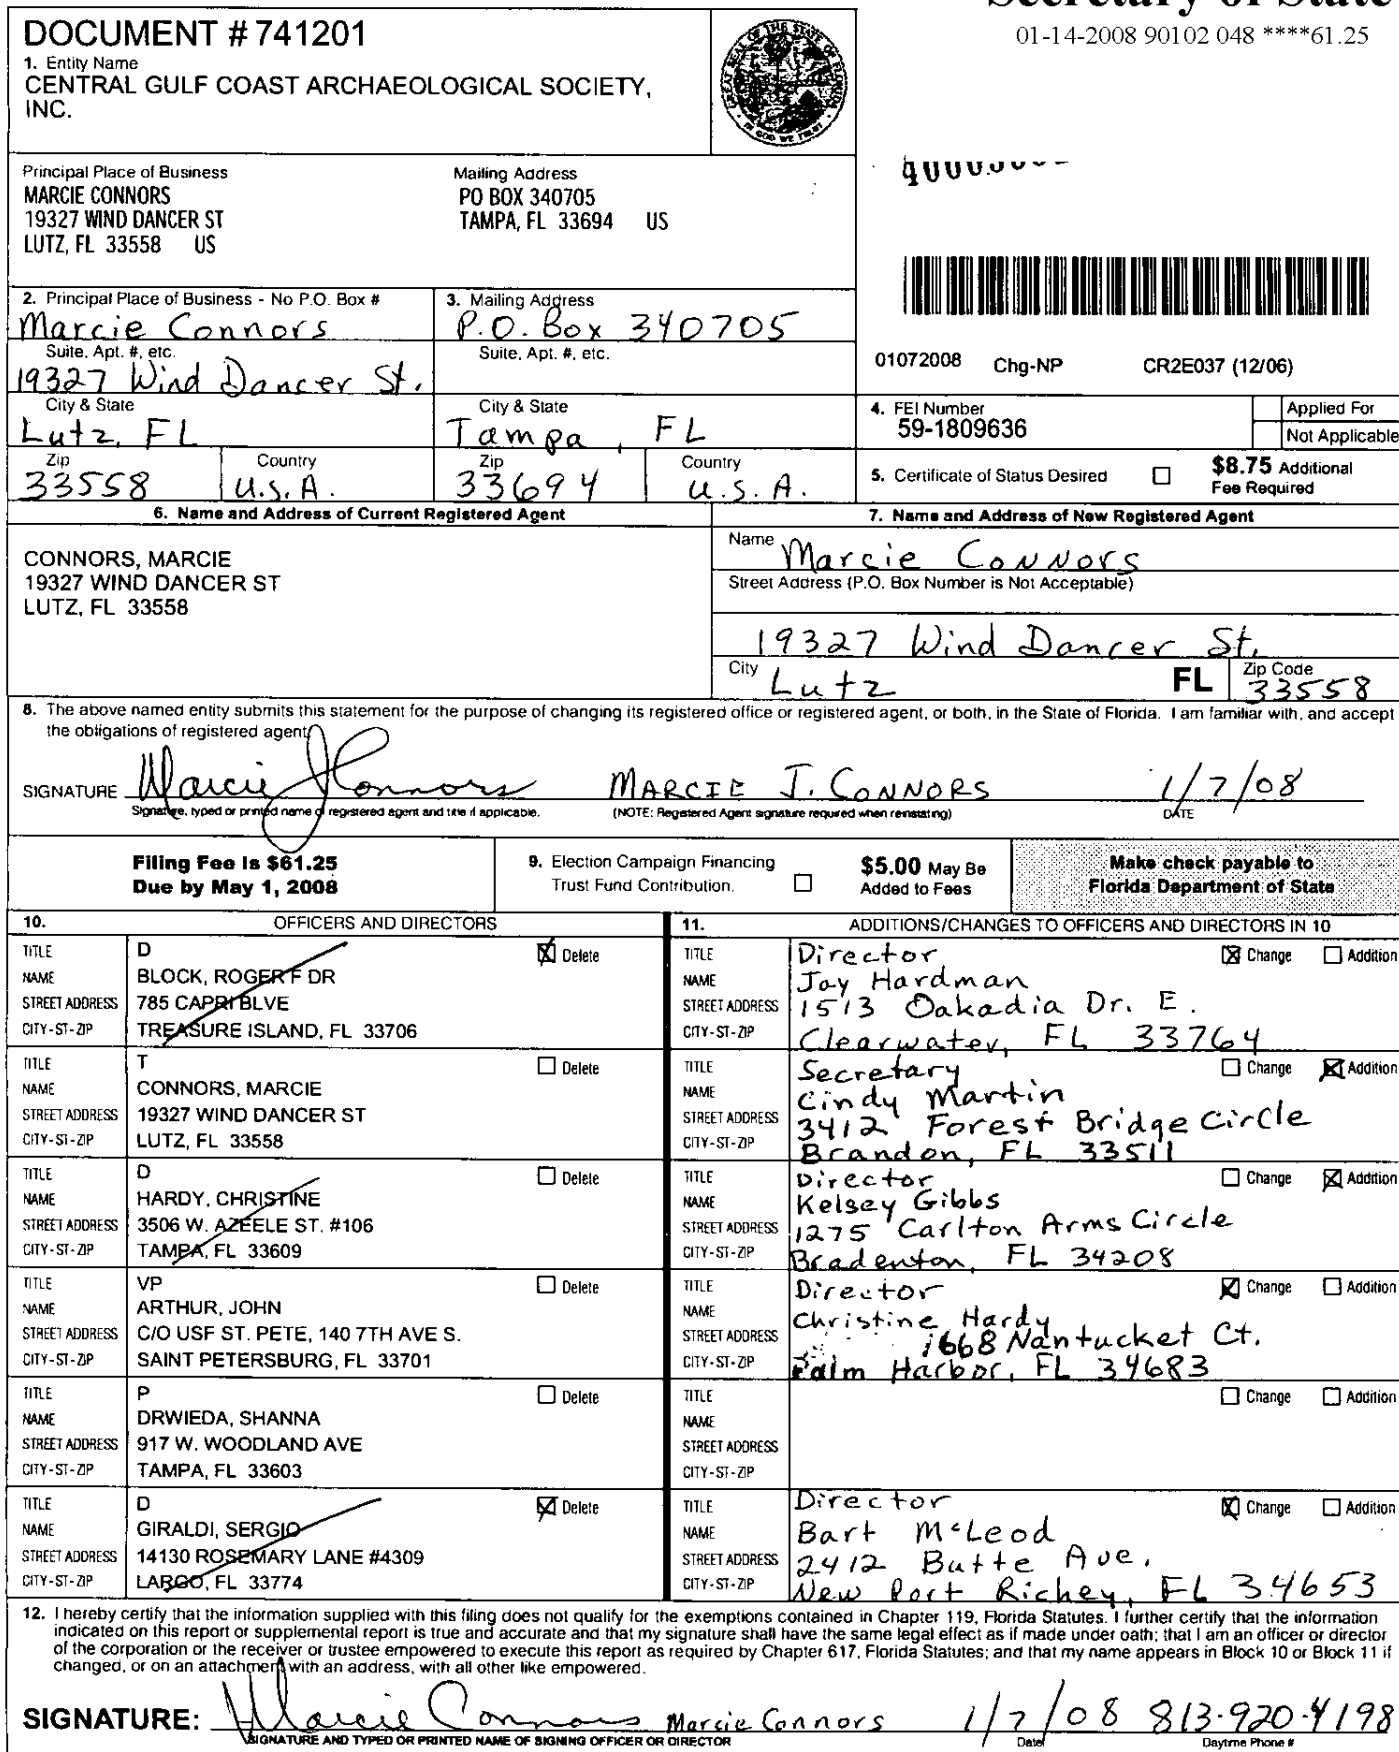 DOCUMENT # 741201
1. Entity Name
CENTRAL GULF COAST ARCHAEOLOGICAL SOCIETY,
INC.
Secretary of State
01-14-2008 90102 048 ****61.25
Principal Place of Business
MARCIE CONNORS
19327 WIND DANCER ST
LUTZ, FL 33558 US
Mailing Address
PO BOX 340705
TAMPA, FL 33694 US
2. Principal Place of Business - No P.O. Box #
Marcie Connors
Suite, Apt. #, etc.
19327 Wind Dancer St.
City & State
Lutz, FL
Zip
33558
Country
U.S.A.
3. Mailing Address
P.O. Box 340705
Suite, Apt. #, etc.
City & State
Tampa, FL
Zip
33694
Country
U.S.A.
01072008 Chg-NP CR2E037 (12/06)
4. FEI Number
59-1809636
Applied For
Not Applicable
5. Certificate of Status Desired
$8.75 Additional
Fee Required
6. Name and Address of Current Registered Agent
CONNORS, MARCIE
19327 WIND DANCER ST
LUTZ, FL 33558
7. Name and Address of New Registered Agent
Name Marcie Connors
Street Address (P.O. Box Number is Not Acceptable)
19327 Wind Dancer St.
City Lutz FL Zip Code 33558
8. The above named entity submits this statement for the purpose of changing its registered office or registered agent, or both, in the State of Florida. I am familiar with, and accept
the obligations of registered agent
SIGNATURE Marcie J Connors MARCIE J. CONNORS 1/7/08
Signature, typed or printed name of registered agent and title if applicable. (NOTE: Registered Agent signature required when reinstating) DATE
Filing Fee is $61.25
Due by May 1, 2008
9. Election Campaign Financing
Trust Fund Contribution.
$5.00 May Be
Added to Fees
Make check payable to
Florida Department of State
10. OFFICERS AND DIRECTORS
TITLE D Delete
NAME BLOCK, ROGER F DR
STREET ADDRESS 785 CAPRI BLVE
CITY-ST-ZIP TREASURE ISLAND, FL 33706
TITLE T Delete
NAME CONNORS, MARCIE
STREET ADDRESS 19327 WIND DANCER ST
CITY-ST-ZIP LUTZ, FL 33558
TITLE D Delete
NAME HARDY, CHRISTINE
STREET ADDRESS 3506 W. AZEELE ST. #106
CITY-ST-ZIP TAMPA, FL 33609
TITLE VP Delete
NAME ARTHUR, JOHN
STREET ADDRESS C/O USF ST. PETE, 140 7TH AVE S.
CITY-ST-ZIP SAINT PETERSBURG, FL 33701
TITLE P Delete
NAME DRWIEDA, SHANNA
STREET ADDRESS 917 W. WOODLAND AVE
CITY-ST-ZIP TAMPA, FL 33603
TITLE D Delete
NAME GIRALDI, SERGIO
STREET ADDRESS 14130 ROSEMARY LANE #4309
CITY-ST-ZIP LARGO, FL 33774
11. ADDITIONS/CHANGES TO OFFICERS AND DIRECTORS IN 10
TITLE Director Change Addition
NAME Jay Hardman
STREET ADDRESS 1513 Oakadia Dr. E.
CITY-ST-ZIP Clearwater, FL 33764
TITLE Secretary Change Addition
NAME Cindy Martin
STREET ADDRESS 3412 Forest Bridge Circle
CITY-ST-ZIP Brandon, FL 33511
TITLE Director Change Addition
NAME Kelsey Gibbs
STREET ADDRESS 1275 Carlton Arms Circle
CITY-ST-ZIP Bradenton, FL 34208
TITLE Director Change Addition
NAME Christine Hardy
STREET ADDRESS 1668 Nantucket Ct.
CITY-ST-ZIP Palm Harbor, FL 34683
TITLE Change Addition
NAME
STREET ADDRESS
CITY-ST-ZIP
TITLE Director Change Addition
NAME Bart McLeod
STREET ADDRESS 2412 Butte Ave.
CITY-ST-ZIP New Port Richey, FL 34653
12. I hereby certify that the information supplied with this filing does not qualify for the exemptions contained in Chapter 119, Florida Statutes. I further certify that the information
indicated on this report or supplemental report is true and accurate and that my signature shall have the same legal effect as if made under oath; that I am an officer or director
of the corporation or the receiver or trustee empowered to execute this report as required by Chapter 617, Florida Statutes; and that my name appears in Block 10 or Block 11 if
changed, or on an attachment with an address, with all other like empowered.
SIGNATURE: Marcie Connors Marcie Connors 1/7/08 813-920-4198
SIGNATURE AND TYPED OR PRINTED NAME OF SIGNING OFFICER OR DIRECTOR Date Daytime Phone #